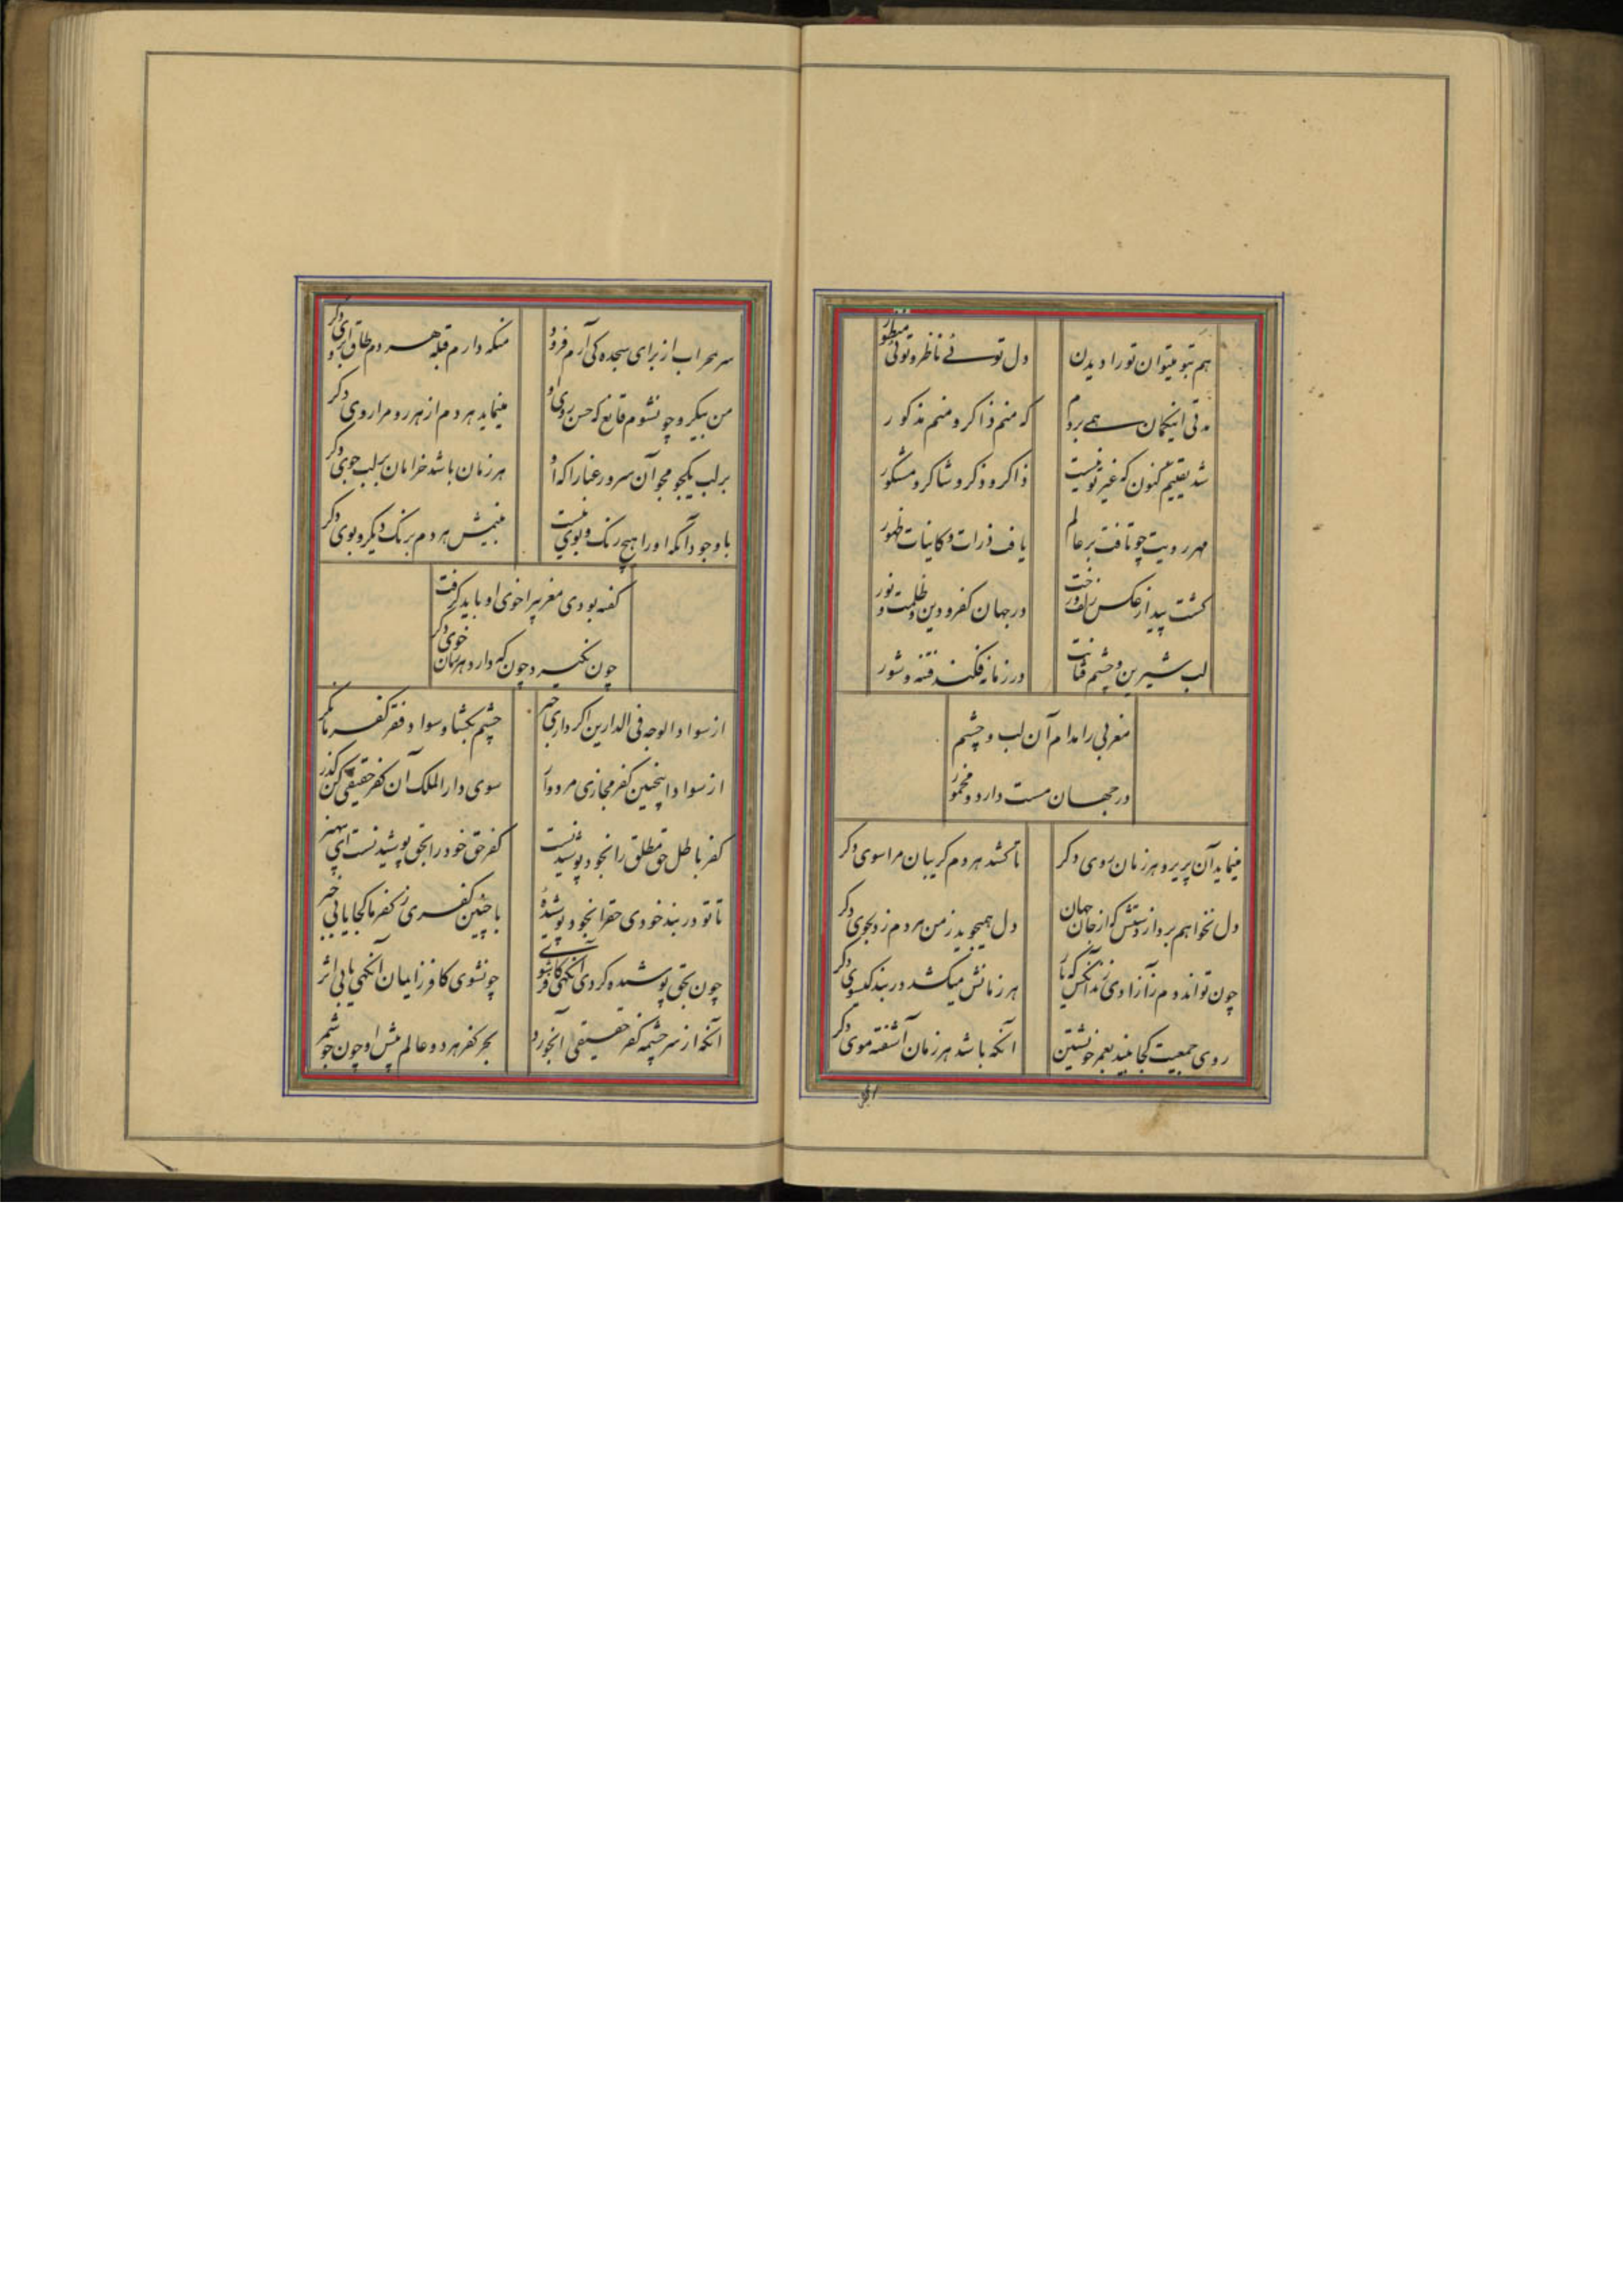 هم بتو میتوان تو را دیدن
دل توئی ناظر و توئی منظور
مدتی اینگمان همی بردم
که منم ذاکر و منم مذکور
شد یقینم کنون که غیر تو نیست
ذاکر و ذکر و شاکر و مشکور
مهر رویت چو تافت بر عالم
یافت ذرات کاینات ظهور
کشت پیدا ز عکس زلف و رخت
در جهان کفر و دین و ظلمت و نور
لب شیرین و چشم فتانت
در زمانه فکند فتنه و شور
مغربی را مدام آن لب و چشم
در جهان مست دارد و مخمور
مینماید آن پریرو هر زمان روی دکر
تا کشد هر دم کریبان مرا سوی دکر
دل نخواهم برد از دستش که از جان جهان
دل همیجوید ز من هر دم ز دلجوی دکر
چون تواند دم ز آزادی زند آنکس که یار
هر زمانش میکشد در بند کیسوی دکر
روی جمعیت کجا بیند بعمر خویشتن
آنکه باشد هر زمان آشفته موی دکر
سر بمحراب از برای سجده کی آرم فرود
منکه دارم قبله هر دم طاق ابروی دکر
من بیکرو چو نشوم قانع که حسن روی او
مینماید هر دم از هر رو مرا روی دکر
بر لب یکجو مجو آن سرو رعنا را که او
هر زمان باشد خرامان بر لب جوی دکر
با وجود آنکه او را هیچ رنک و بوی نیست
بینمش هر دم برنک دیکر و بوی دکر
کفته بودی مغربی را خوی او باید کرفت
چون نکیرد چون که دارد هر زمان خوی دکر
از سواد الوجه فی الدارین اکر داری خبر
چشم بکشا و سواد فقر کفر ما نکر
از سواد اینچنین کفر مجازی مردوار
سوی دار الملک آن کفر حقیقی کن کذر
کفر باطل حق مطلق را بخود پوشیدنست
کفر حق خود را بحق پوشیدنست ای پر هنر
تا تو در بند خودی حق را بخود پوشیدهٔ
با چنین کفری ز کفر ما کجا یابی خبر
چون بحق پوشیده کردی آنکهی کافر شوی
چو نشوی کافر ز ایمان آنکهی یابی اثر
آنکه از سر چشمه کفر حقیقی آبخورد
بحر کفر هر دو عالم پیش او چون جو شمر